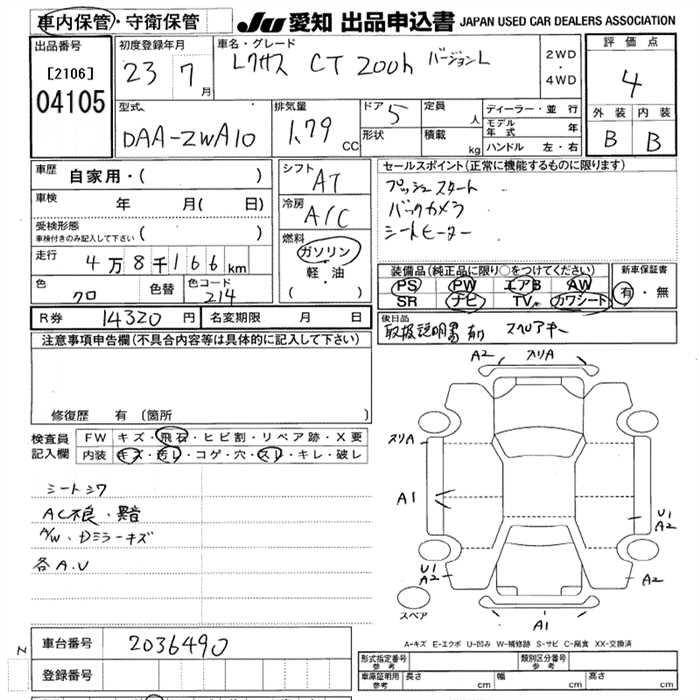 車内保管・守衛保管
JU 愛知 出品申込書 JAPAN USED CAR DEALERS ASSOCIATION
出品番号
[2106]
04105
初度登録年月
23 7 月
車名・グレード
レクサス CT 200h バージョンL
2WD
・
4WD
評価点
4
外装 内装
B B
型式
DAA-ZWA10
排気量
1.79 CC
ドア 5
形状
定員 人
積載 kg
ディーラー・並行
モデル年式 年
ハンドル 左・右
車歴 自家用・( )
車検 年 月( 日)
受検形態
車検付きのみ記入して下さい ( )
走行 4万8千166km
色 クロ 色替 色コード 214
シフト AT
冷房 A/C
燃料
ガソリン
軽・油
( )
セールスポイント(正常に機能するものに限ります)
プッシュスタート
バックカメラ
シートヒーター
装備品(純正品に限り○をつけてください)
PS PW エアB AW
SR ナビ TV カワシート
新車保証書
有・無
後日品
取扱説明書 有り スペアキー
R券 14320 円 名変期限 月 日
注意事項申告欄(不具合内容等は具体的に記入して下さい)
修復歴 有 (箇所 )
検査員記入欄
FW キズ・飛石・ヒビ割・リペア跡・X要
内装 キズ・汚レ・コゲ・穴・スレ・キレ・破レ
シートシワ
AC不良・異音
A/W・Dミラーキズ
各A.U
A2 スリA
スリA
A1
U1
A2
U1
A2
A2
スペア
A1
A-キズ E-エクボ U-凹み W-補修跡 S-サビ C-腐食 XX-交換済
車台番号 2036490
登録番号
形式指定番号 参考
類別区分番号 参考
車庫証明用 参考 長さ cm 幅 cm 高さ cm
N